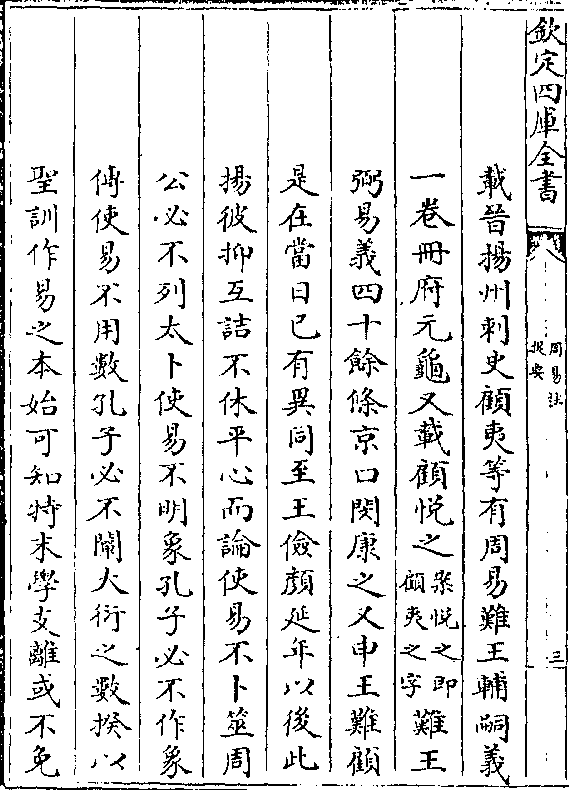 欽定四庫全書
周易註
提要
三
載晉揚州刺史顧夷等有周易難王輔嗣義
一卷冊府元龜又載顧悅之
案悅之即
顧夷之字
難王
弼易義四十餘條京口閔康之又申王難顧
是在當日已有異同至王儉顏延年以後此
揚彼抑互詰不休平心而論使易不卜筮周
公必不列太卜使易不明象孔子必不作象
傳使易不用數孔子必不闡大衍之數揆以
聖訓作易之本始可知特末學支離或不免